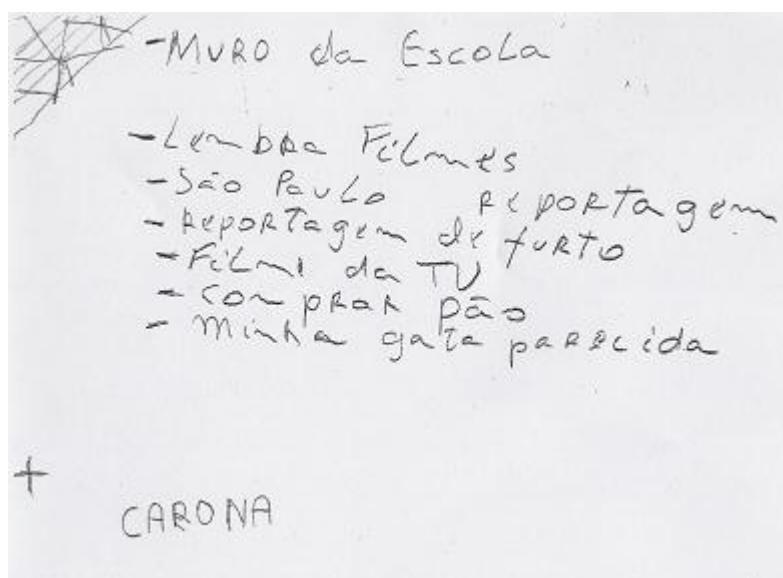 - MURO da Escola
- Lembra Filmes
- São Paulo reportagem
- Reportagem de furto
- Filme da TV
- Comprar pão
- Minha gata parecida
+
CARONA